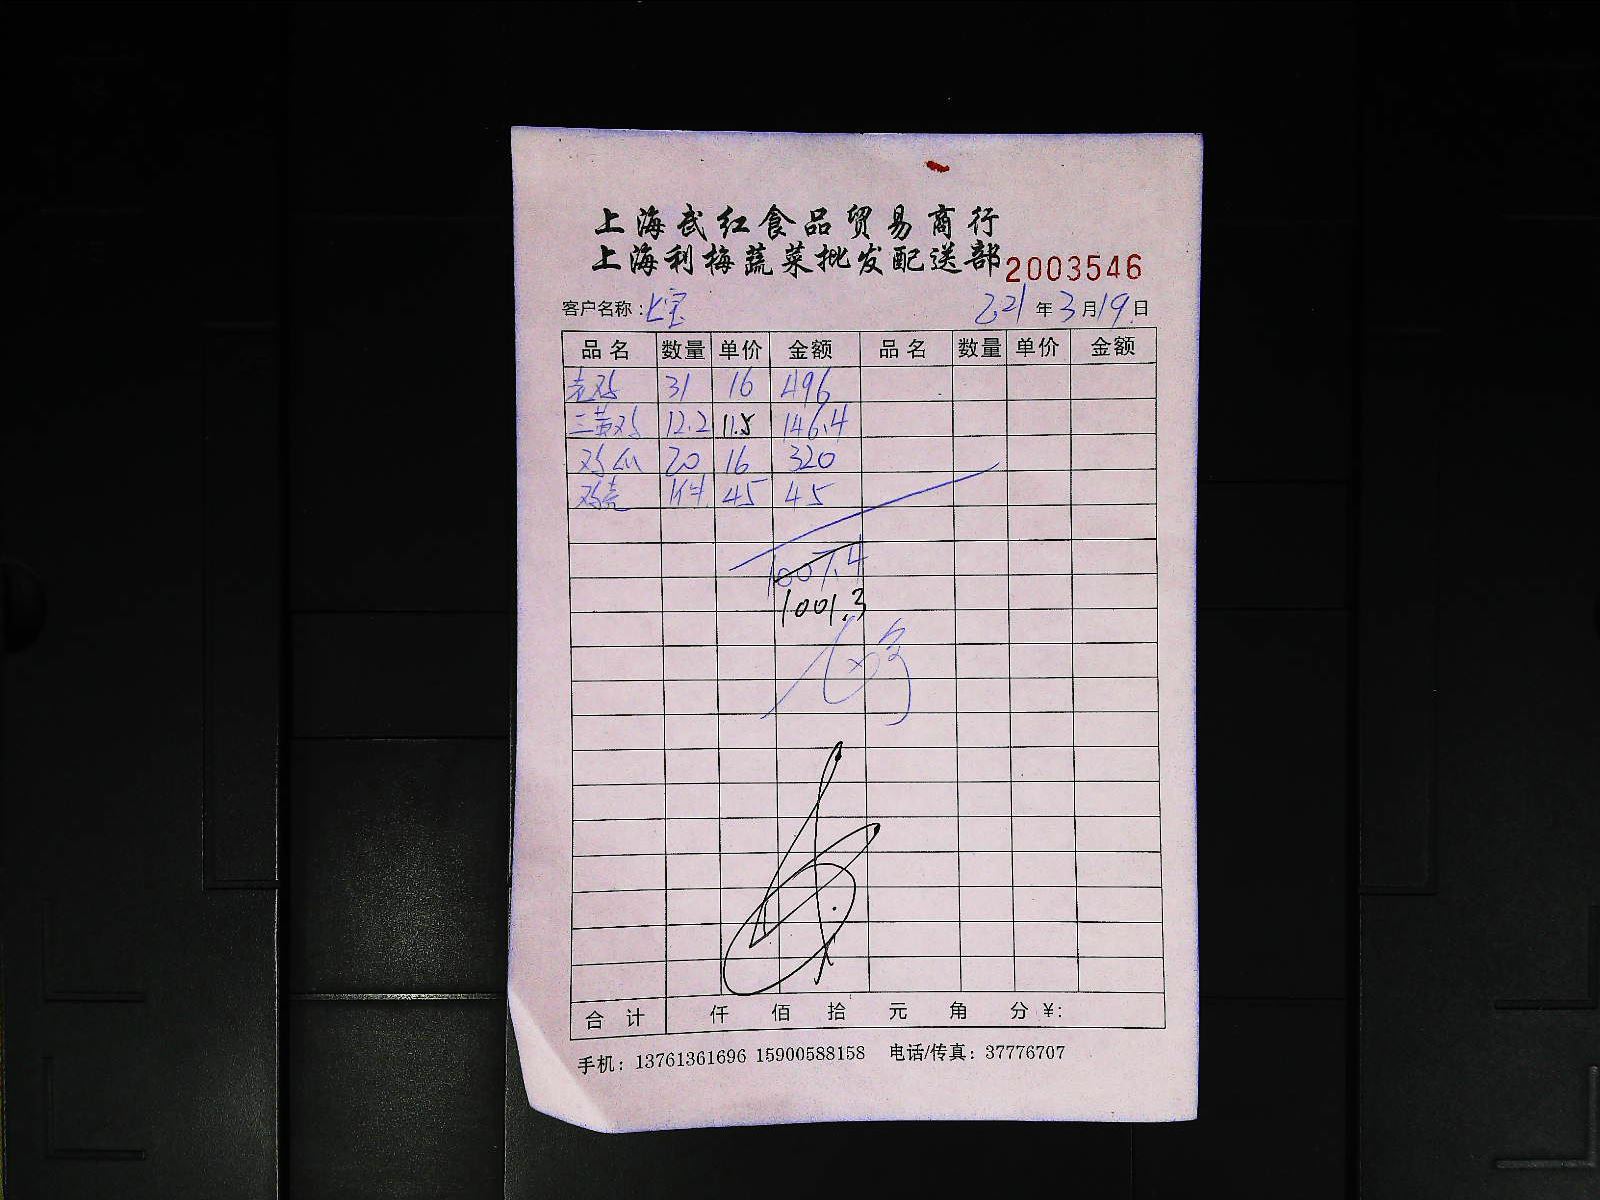 上海武红食品贸易商行
上海利梅蔬菜批发配送部 2003546
客户名称：上宝 221年3月19日
品名 数量 单价 金额 品名 数量 单价 金额
老鸡 31 16 496
三黄鸡 12.2 11.5 146.4
鸡爪 20 16 320
鸡壳 1件 45 45
1007.4
1001.3
合计 仟 佰 拾 元 角 分 ¥:
手机：13761361696 15900588158 电话/传真：37776707